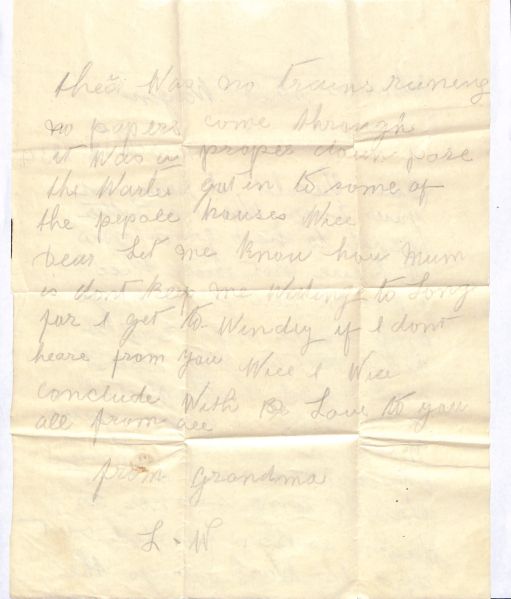 ther Was no trains runing
no papers come through
it Was a proper down pore
the Warter got in to some of
the pepole houses Well
Dear Let me know how Mum
is dont keep me Wating to Long
for I get to Windiy if I dont
heare from you Well I Will
conclude With Be Love to you
all from all
from Grandma
L. W